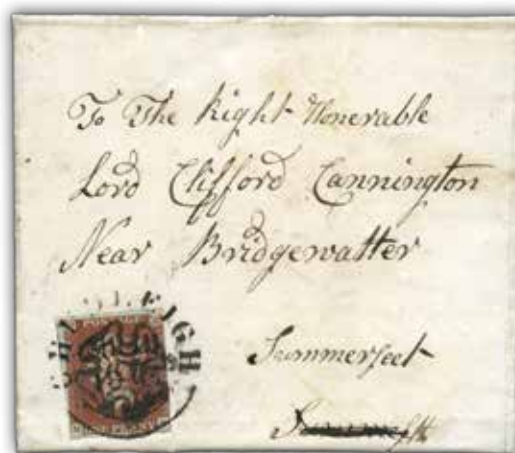 To The Right Honerable
Lord Clifford Cannington
Near Bridgewatter
Summerset